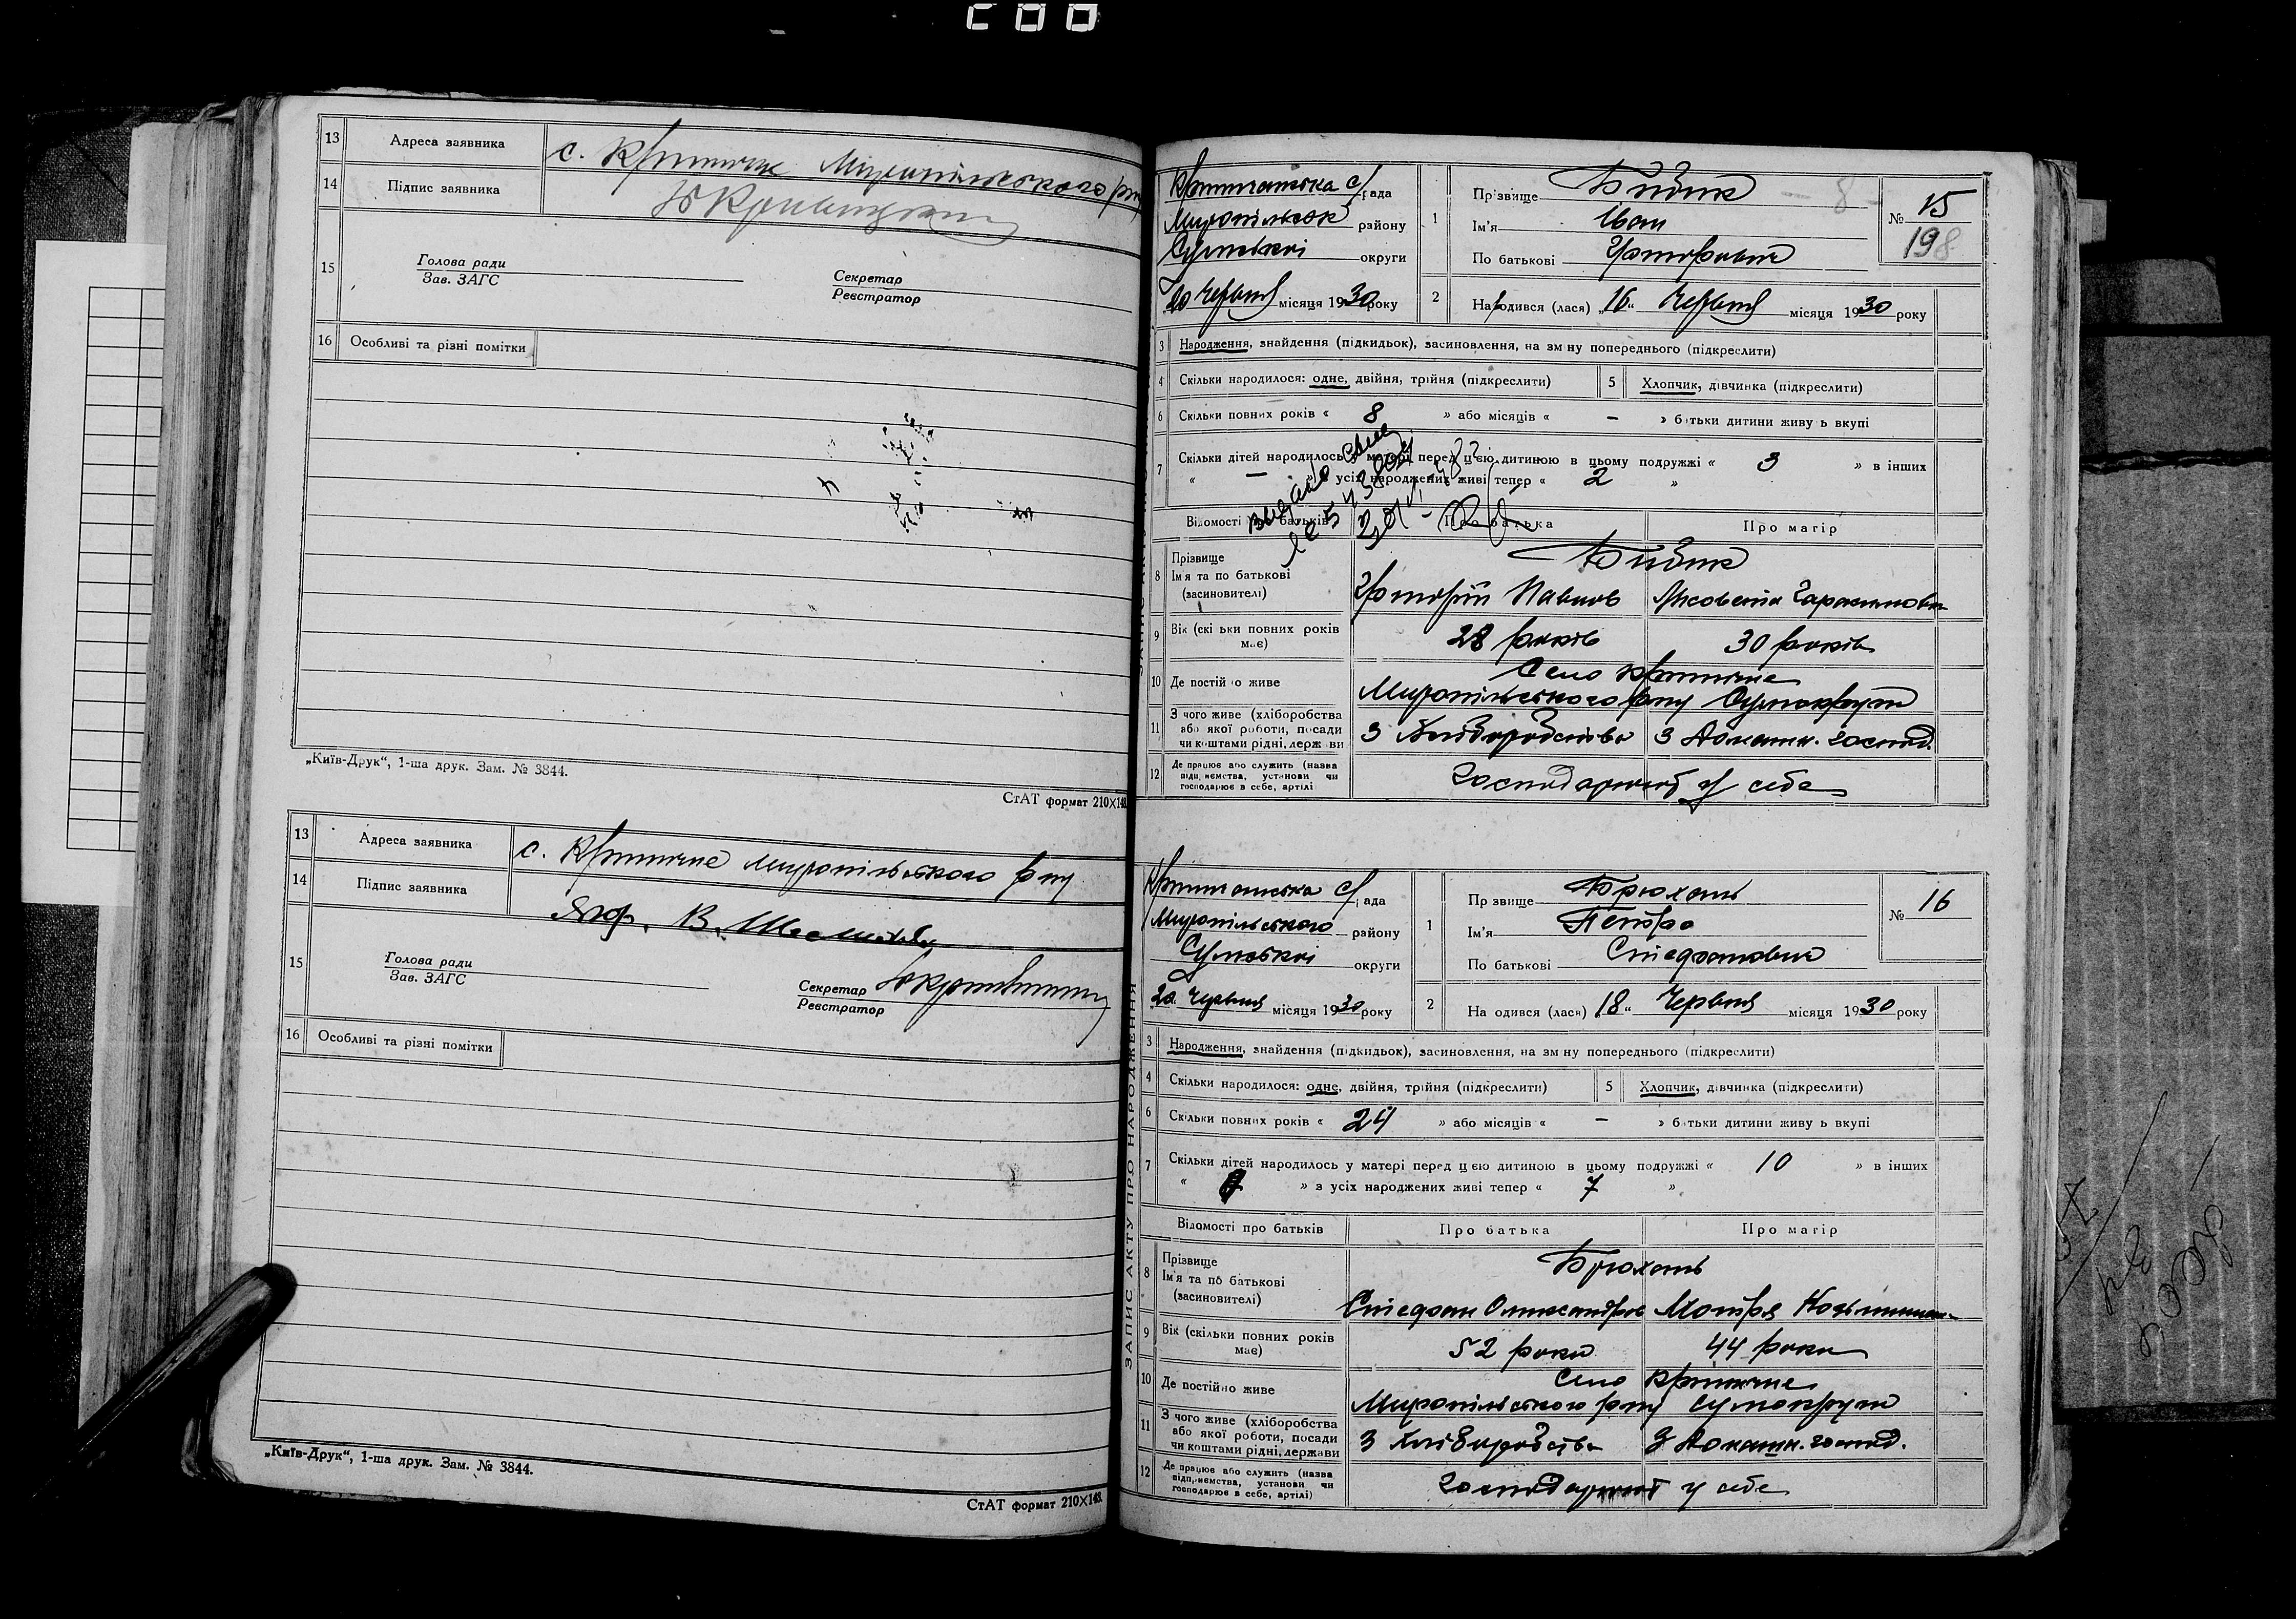 200
13 Адреса заявника с. Криничне Миропільського р-ну
14 Підпис заявника
15 Голова ради
Зав. ЗАГС
Секретар
Реєстратор
16 Особливі та різні помітки
„Київ-Друк“, 1-ша друк. Зам. № 3844.
СтАТ формат 210×148.
13 Адреса заявника с. Криничне Миропільського р-ну
14 Підпис заявника
15 Голова ради
Зав. ЗАГС
Секретар
Реєстратор
16 Особливі та різні помітки
„Київ-Друк“, 1-ша друк. Зам. № 3844.
СтАТ формат 210×148.
ЗАПИС АКТУ ПРО НАРОДЖЕННЯ
Криничанська с/рада
Миропільськ району
Сумської округи
20 Червня місяця 1930 року
1 Прізвище Бибик
Ім'я Іван
По батькові Григорович
№ 15
198
2 Народився (лася) „16“ Червня місяця 1930 року
3 Народження, знайдення (підкидьок), засиновлення, на зміну попереднього (підкреслити)
4 Скільки народилося: одне, двійня, трійня (підкреслити)
5 Хлопчик, дівчинка (підкреслити)
6 Скільки повних років « 8 » або місяців « – » батьки дитини живуть вкупі
7 Скільки дітей народилось у матері перед цією дитиною в цьому подружжі « 3 » в інших
« – » з усіх народжених живі тепер « 2 »
Відомості про батьків Про батька Про матір
8 Прізвище
Ім'я та по батькові
(засиновителі)
Бибик
Григорій Павлов
9 Вік (скільки повних років має) 28 років 30 років
10 Де постійно живе Село Криничне
Миропільського р-ну Сумокруги
11 З чого живе (хліборобства
або якої роботи, посади
чи коштами рідні, держави
З Хліборобства З домашн. господ.
12 Де працює або служить (назва
підприємства, установи чи
господарює в себе, артілі
Господарюют у себе
Криничанська с/рада
Миропільського району
Сумської округи
20 Червня місяця 1930 року
1 Прізвище Брюхань
Ім'я Петро
По батькові Стефанович
№ 16
2 Народився (лася) 18“ Червня місяця 1930 року
3 Народження, знайдення (підкидьок), засиновлення, на зміну попереднього (підкреслити)
4 Скільки народилося: одне, двійня, трійня (підкреслити)
5 Хлопчик, дівчинка (підкреслити)
6 Скільки повних років « 24 » або місяців « – » батьки дитини живуть вкупі
7 Скільки дітей народилось у матері перед цією дитиною в цьому подружжі « 10 » в інших
« » з усіх народжених живі тепер « 7 »
Відомості про батьків Про батька Про матір
8 Прізвище
Ім'я та по батькові
(засиновителі)
Брюхань
Стефан Олександров Мотря
9 Вік (скільки повних років має) 52 роки 44 роки
10 Де постійно живе Село Криничне
Миропільського р-ну Сумокруги
11 З чого живе (хліборобства
або якої роботи, посади
чи коштами рідні, держави
З Хліборобства З домашн. господ.
12 Де працює або служить (назва
підприємства, установи чи
господарює в себе, артілі)
Господарюют у себе